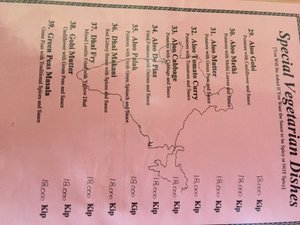 Special Vegetarian Dishes
(You Will Be Asked If You Want the Same to be Spicy or NOT Spicy)
29. Aloo Gobi 18,000 Kip
Potatoes with Cauliflower and Sauce
30. Aloo Methi 18,000 Kip
Potatoes with Methi and Sauce
31. Aloo Mutter 18,000 Kip
Potatoes with Green Peas and Sauce
32. Aloo Tomato Curry 18,000 Kip
Potatoes with Tomatoes and Sauce
33. Aloo Cabbage 18,000 Kip
Potatoes with Cabbage and Sauce
34. Aloo Do Piaz 18,000 Kip
Fried Potatoes with Onion and Sauce
35. Aloo Palak 18,000 Kip
Potatoes with Fresh Green Spinach and Sauce
36. Dhal Makani 18,000 Kip
Red Kidney Beans with Spices and Sauce
37. Dhal Fry 18,000 Kip
Boiled Lentils Fried with Yellow Dhal
38. Gobi Mutter 18,000 Kip
Cauliflower with Green Peas and Sauce
39. Green Peas Masala 18,000 Kip
Green Peas with Traditional Spices and Sauce